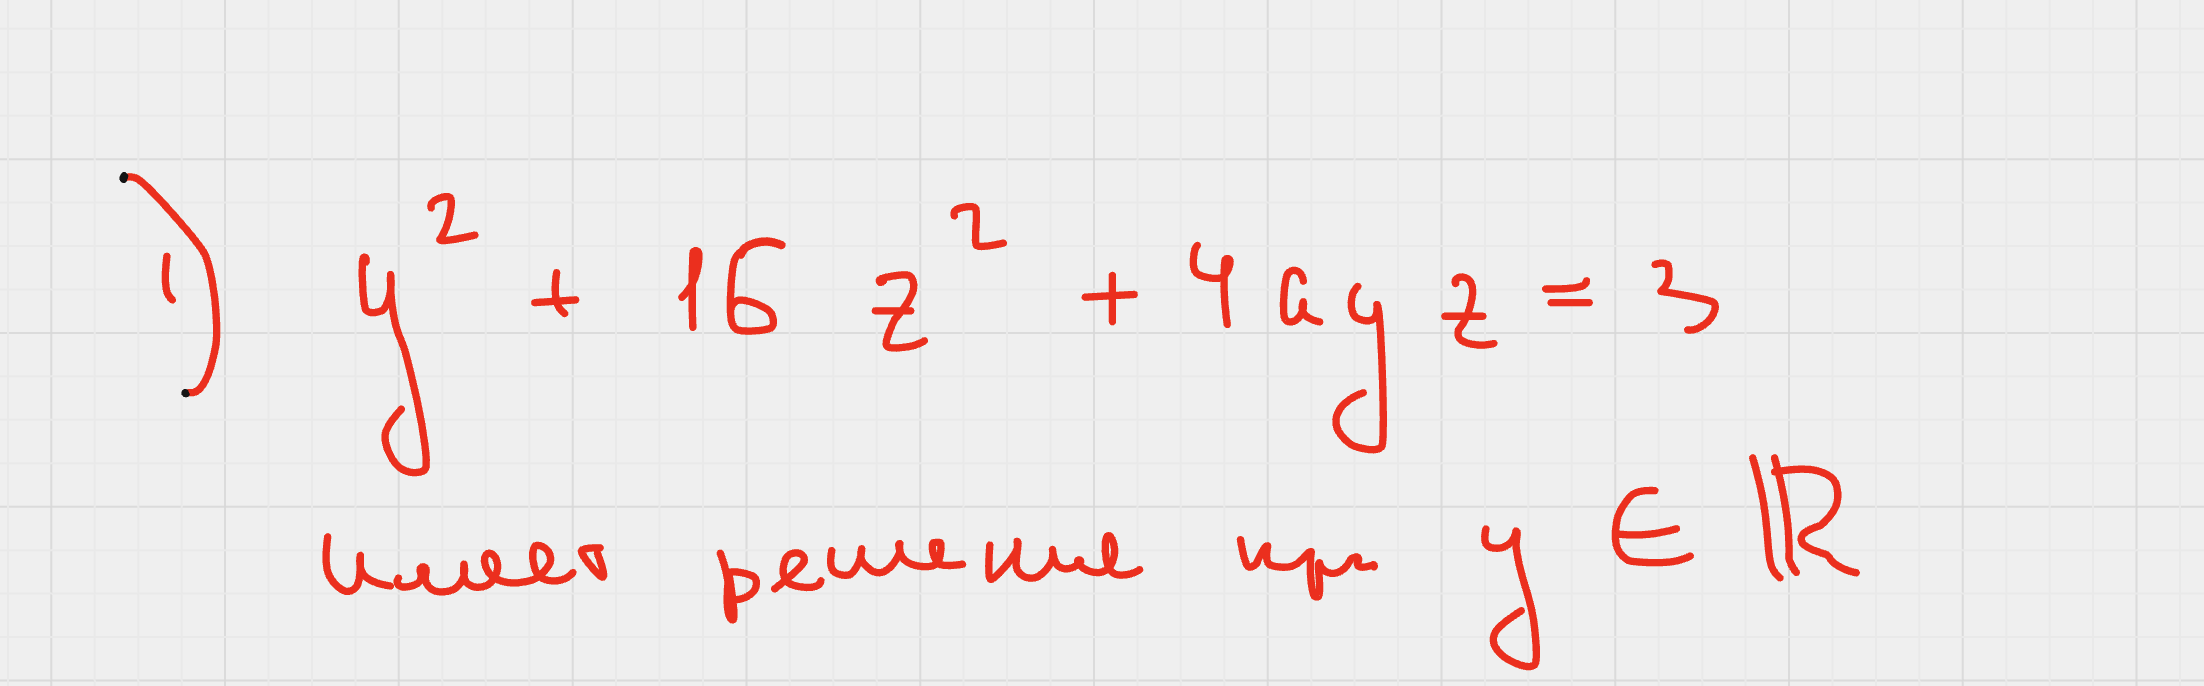 1) y² + 16 z² + 4ayz = 3
имеет решение при y ∈ ℝ